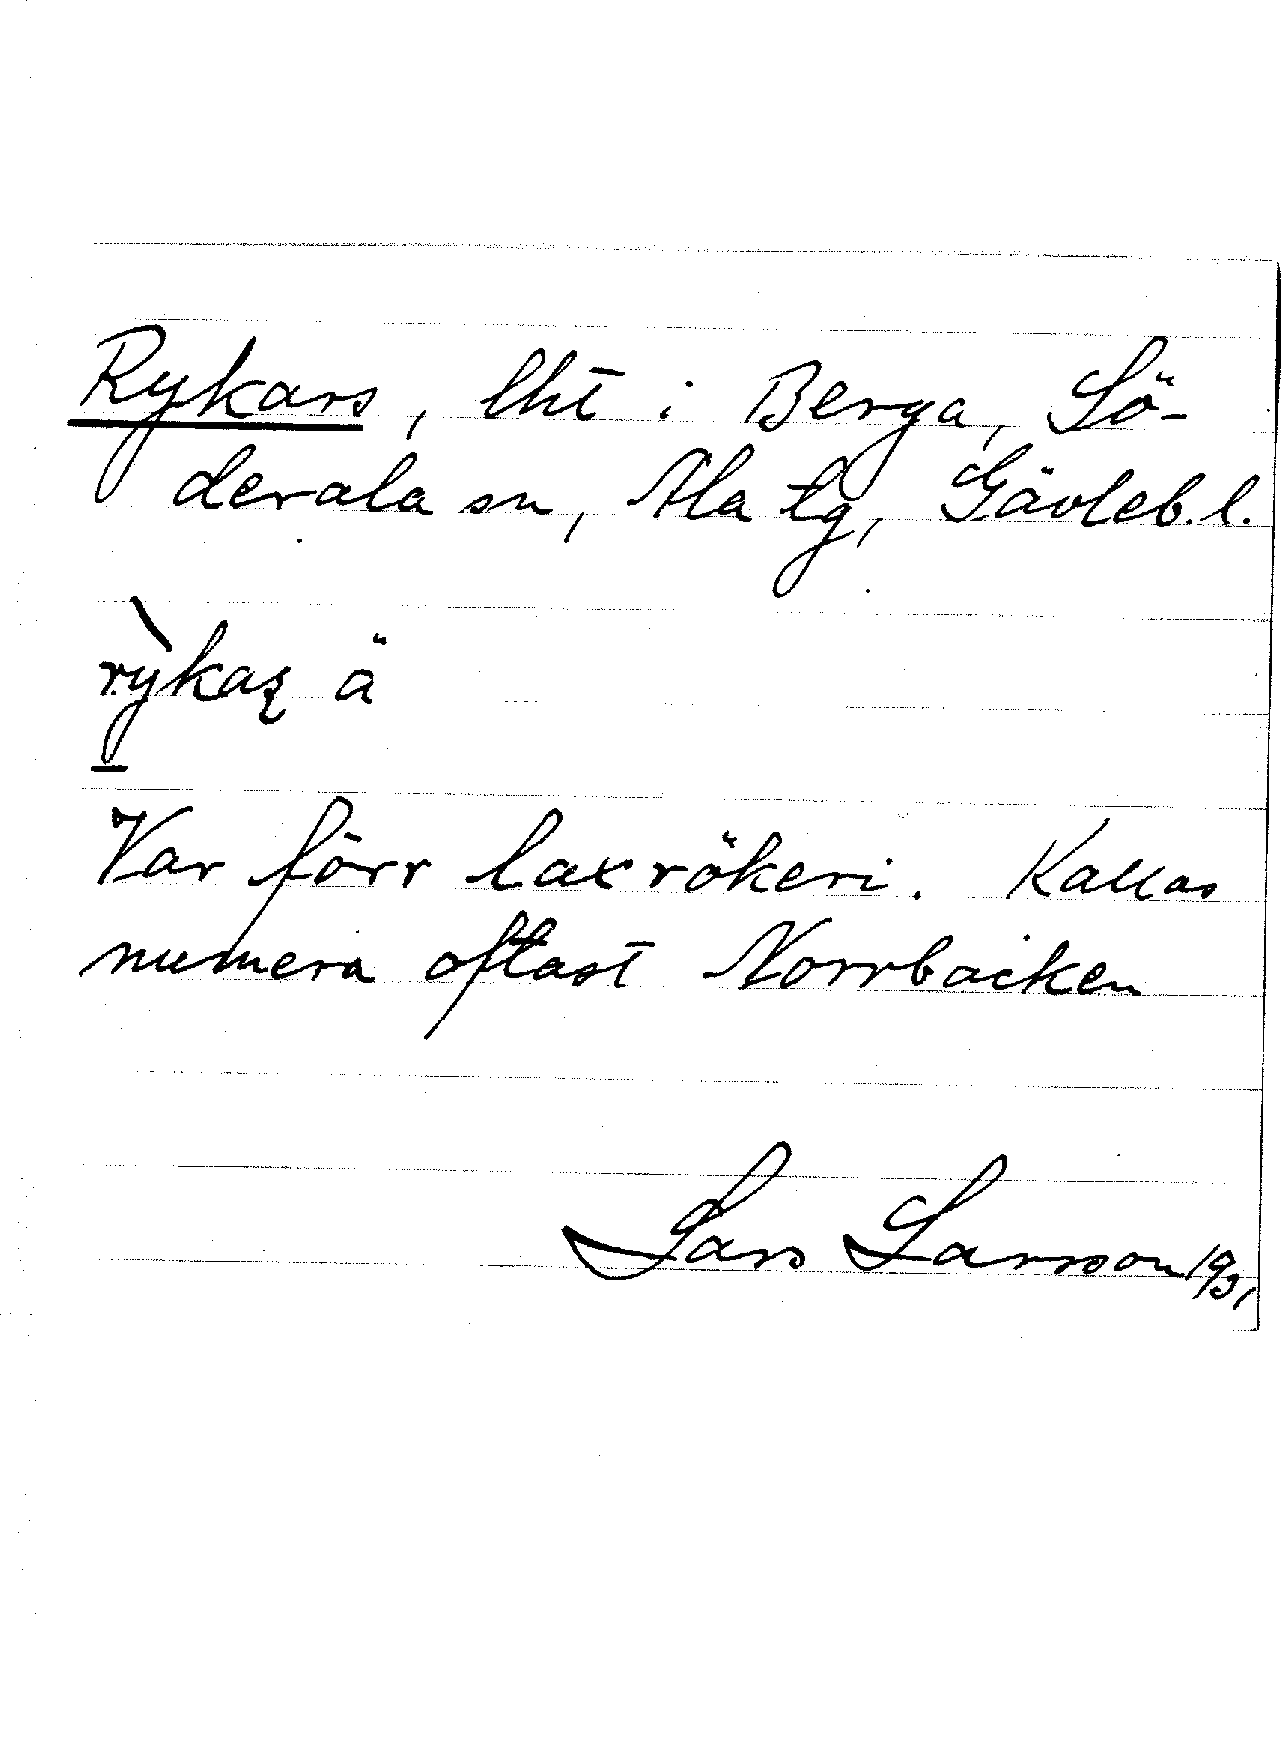 Rykars, lht i Berga, Sö-
derala sn, Ala tg, Gävleb. l.
rỳkaş ä
Var förr laxrökeri. Kallas
numera oftast Norrbacken
Lars Larsson 1931